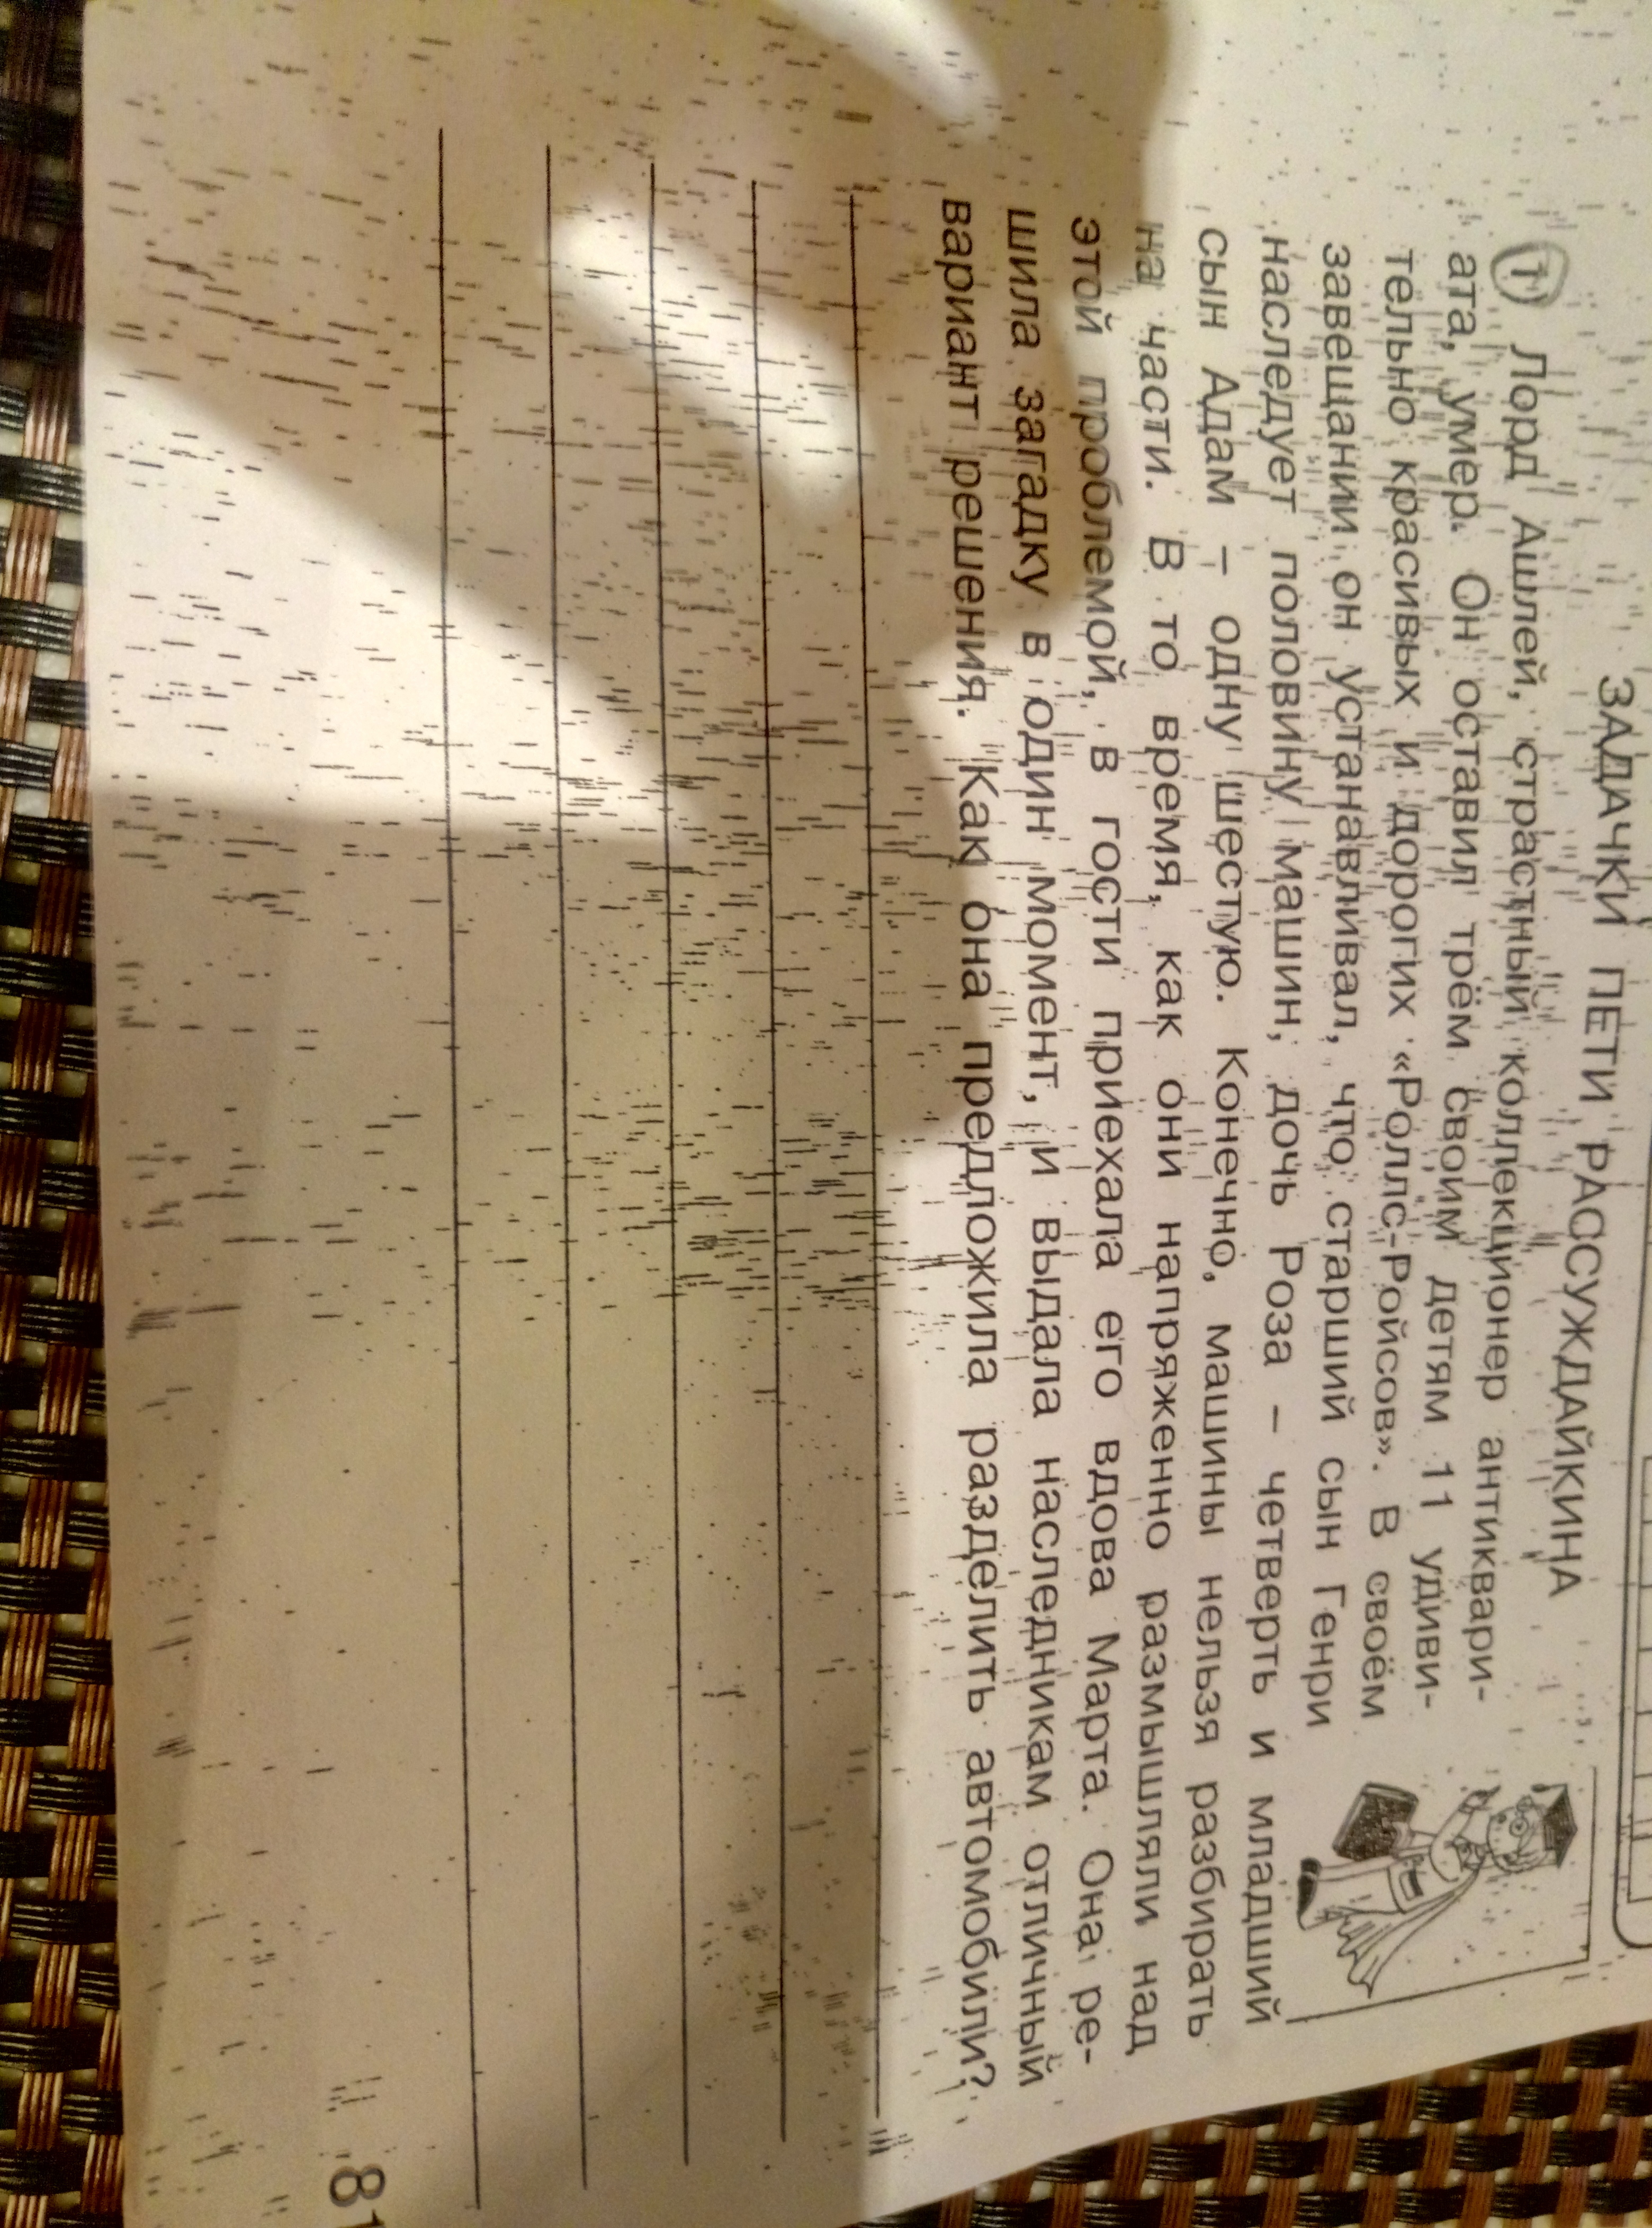 ЗАДАЧКИ ПЕТИ РАССУЖДАЙКИНА
1 Лорд Ашлей, страстный коллекционер антиквари-
ата, умер. Он оставил трём своим детям 11 удиви-
тельно красивых и дорогих «Роллс-Ройсов». В своём
завещании он устанавливал, что старший сын Генри
наследует половину машин, дочь Роза – четверть и младший
сын Адам – одну шестую. Конечно, машины нельзя разбирать
на части. В то время, как они напряженно размышляли над
этой проблемой, в гости приехала его вдова Марта. Она ре-
шила загадку в один момент, и выдала наследникам отличный
вариант решения. Как она предложила разделить автомобили?
81